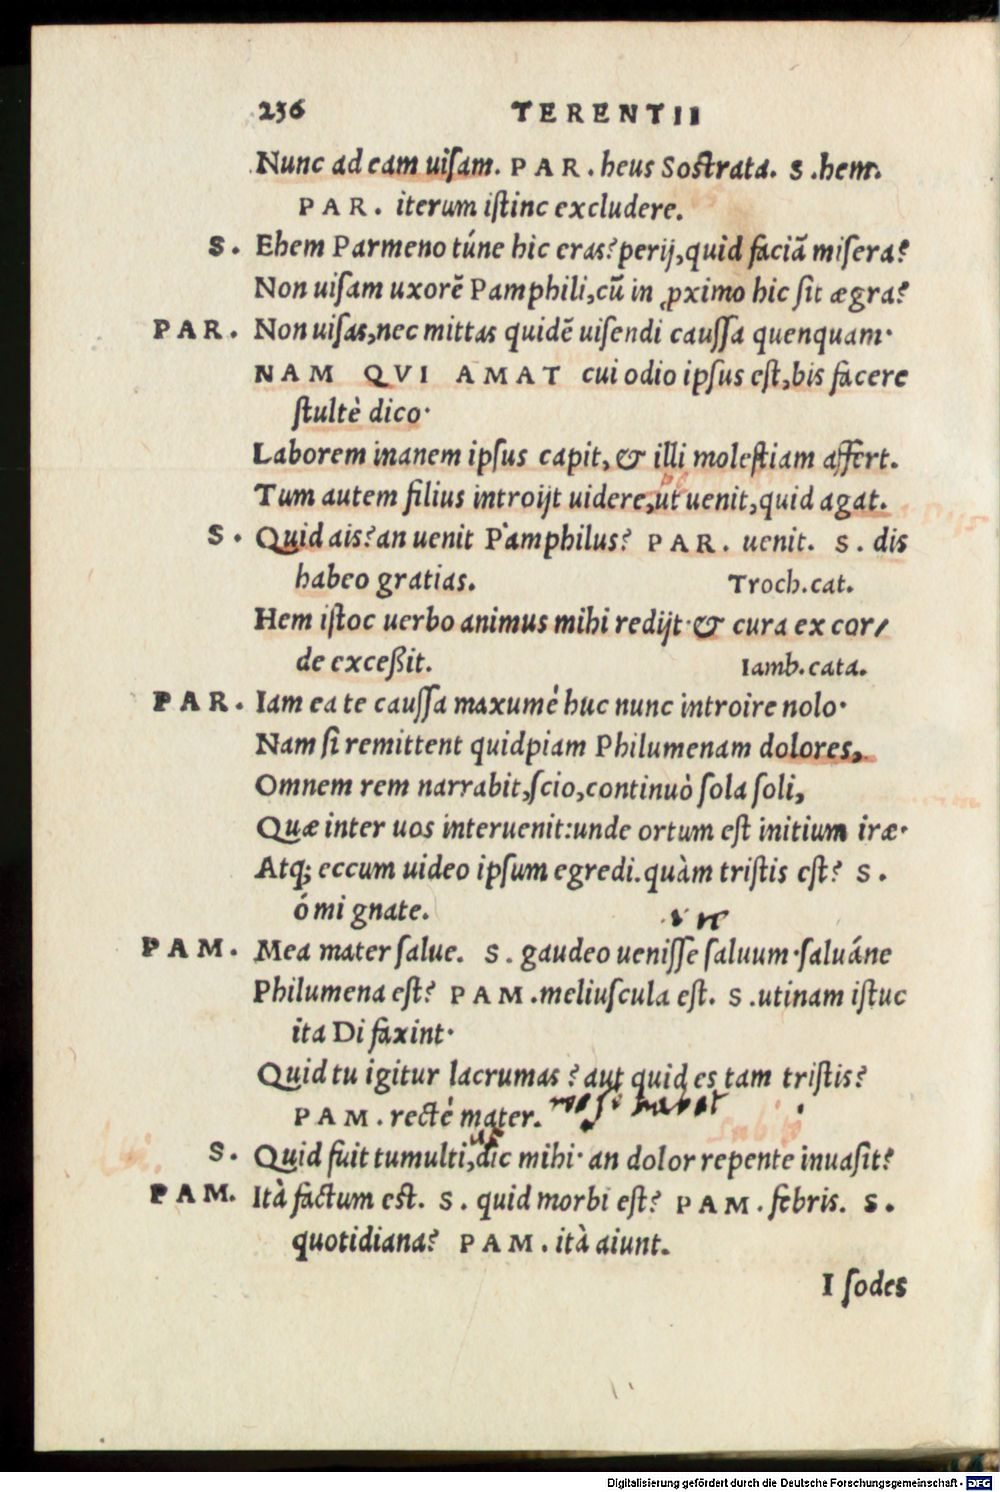 236 TERENTII
Nunc ad eam uiſam. PAR. heus Soſtrata. S. hem.
PAR. iterum iſtinc excludere.
S. Ehem Parmeno túne hic eras? perij, quid faciã miſera?
Non uiſam uxorẽ Pamphili, cũ in ꝓximo hic ſit ægra?
PAR. Non uiſas, nec mittas quidẽ uiſendi cauſſa quenquam·
NAM QVI AMAT cui odio ipſus eſt, bis facere
ſtultè dico·
Laborem inanem ipſus capit, & illi moleſtiam affert.
Tum autem filius introijt uidere, ut uenit, quid agat.
S. Quid ais? an uenit Pamphilus? PAR. uenit. S. dis
habeo gratias. Troch.cat.
Hem iſtoc uerbo animus mihi redijt· & cura ex cor/
de exceßit. Iamb.cata.
PAR. Iam ea te cauſſa maxumè huc nunc introire nolo·
Nam ſi remittent quidpiam Philumenam dolores,
Omnem rem narrabit, ſcio, continuò ſola ſoli,
Quæ inter uos interuenit: unde ortum eſt initium iræ·
Atq; eccum uideo ipſum egredi. quàm triſtis eſt? S.
ó mi gnate.
PAM. Mea mater ſalue. S. gaudeo ueniſſe ſaluum· ſaluáne
Philumena eſt? PAM. meliuſcula eſt. S. utinam iſtuc
ita Di faxint·
Quid tu igitur lacrumas? aut quid es tam triſtis?
PAM. rectè mater.
S. Quid fuit tumulti, dic mihi· an dolor repente inuaſit?
PAM. Ità factum est. S. quid morbi eſt? PAM. febris. S.
quotidiana? PAM. ità aiunt.
I ſodes
Digitalisierung gefördert durch die Deutsche Forschungsgemeinschaft - DFG